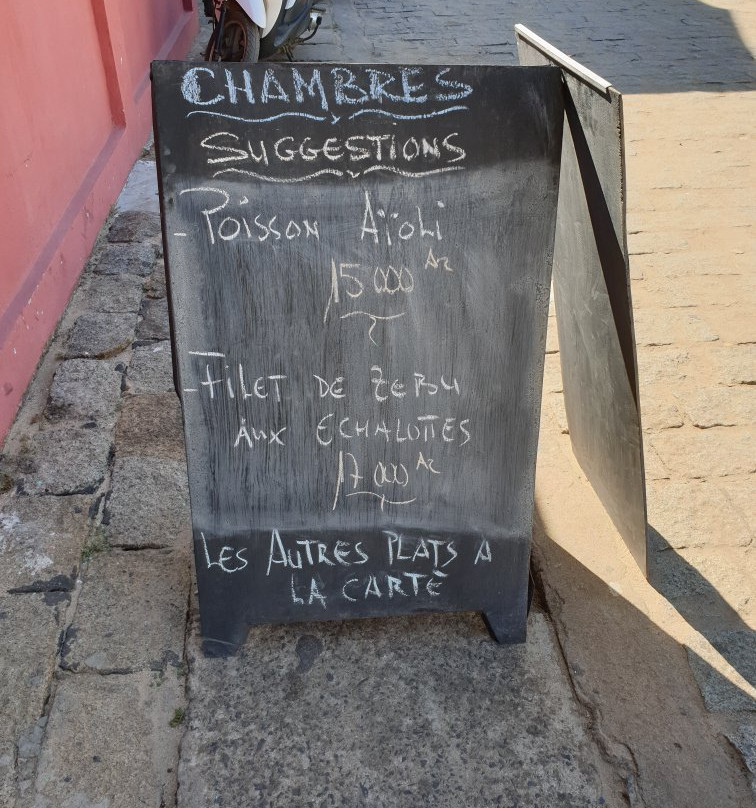 CHAMBRES
SUGGESTIONS
- POISSON AÏOLI
15 000 Ar
- FILET DE ZEBU
AUX ECHALOTTES
17 000 Ar
LES AUTRES PLATS A
LA CARTE